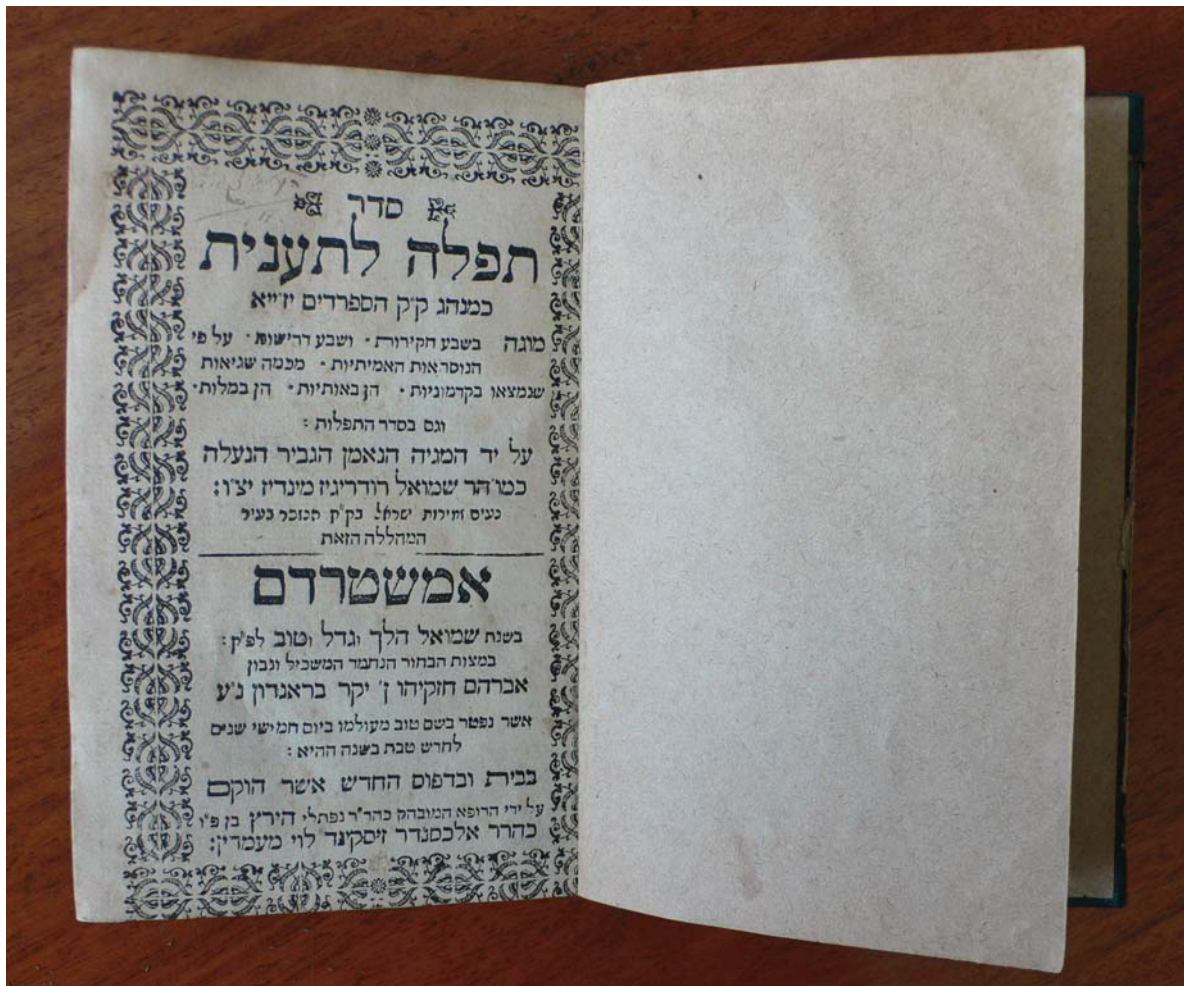 סדר
תפלה לתענית
כמנהג ק״ק הספרדים יז״ייא
מוגה בשבע חקירות · ושבע דרישות · על פי
הנוסראות האמיתיות · מכמה שגיאות
שנמצאו בקדמוניות · הן באותיות · הן במלות ·
וגם בסדר התפלות :
על יד המגיה הנאמן הגביר הנעלה
כמו״הר שמואל רודריגיז מינדיז יצ״ו :
נעים זמירות ישראל בק״ק הנזכר בעיר
המהללה הזאת
אמשטרדם
בשנת שמואל הלך וגדל וטוב לפ״ק :
במצות הבחור הנחמד המשכיל ונבון
אברהם חזקיהו ן׳ יקר בראנדון נ״ע
אשר נפטר בשם טוב מעולמו ביום חמישי שנים
לחדש טבת בשנה ההיא :
בבית ובדפוס החדש אשר הוקם
על ידי הרופא המובהק כהר״ר נפתלי הירץ בן פ״ו
כהרר אלכסנדר זיסקינד לוי מעמדין :